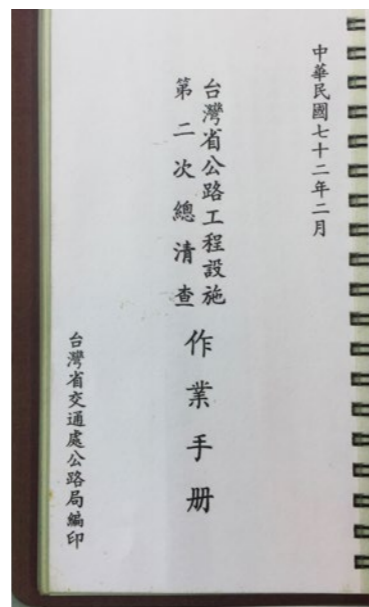 中華民國七十二年二月
台灣省公路工程設施
第二次總清查
作業手册
台灣省交通處公路局編印